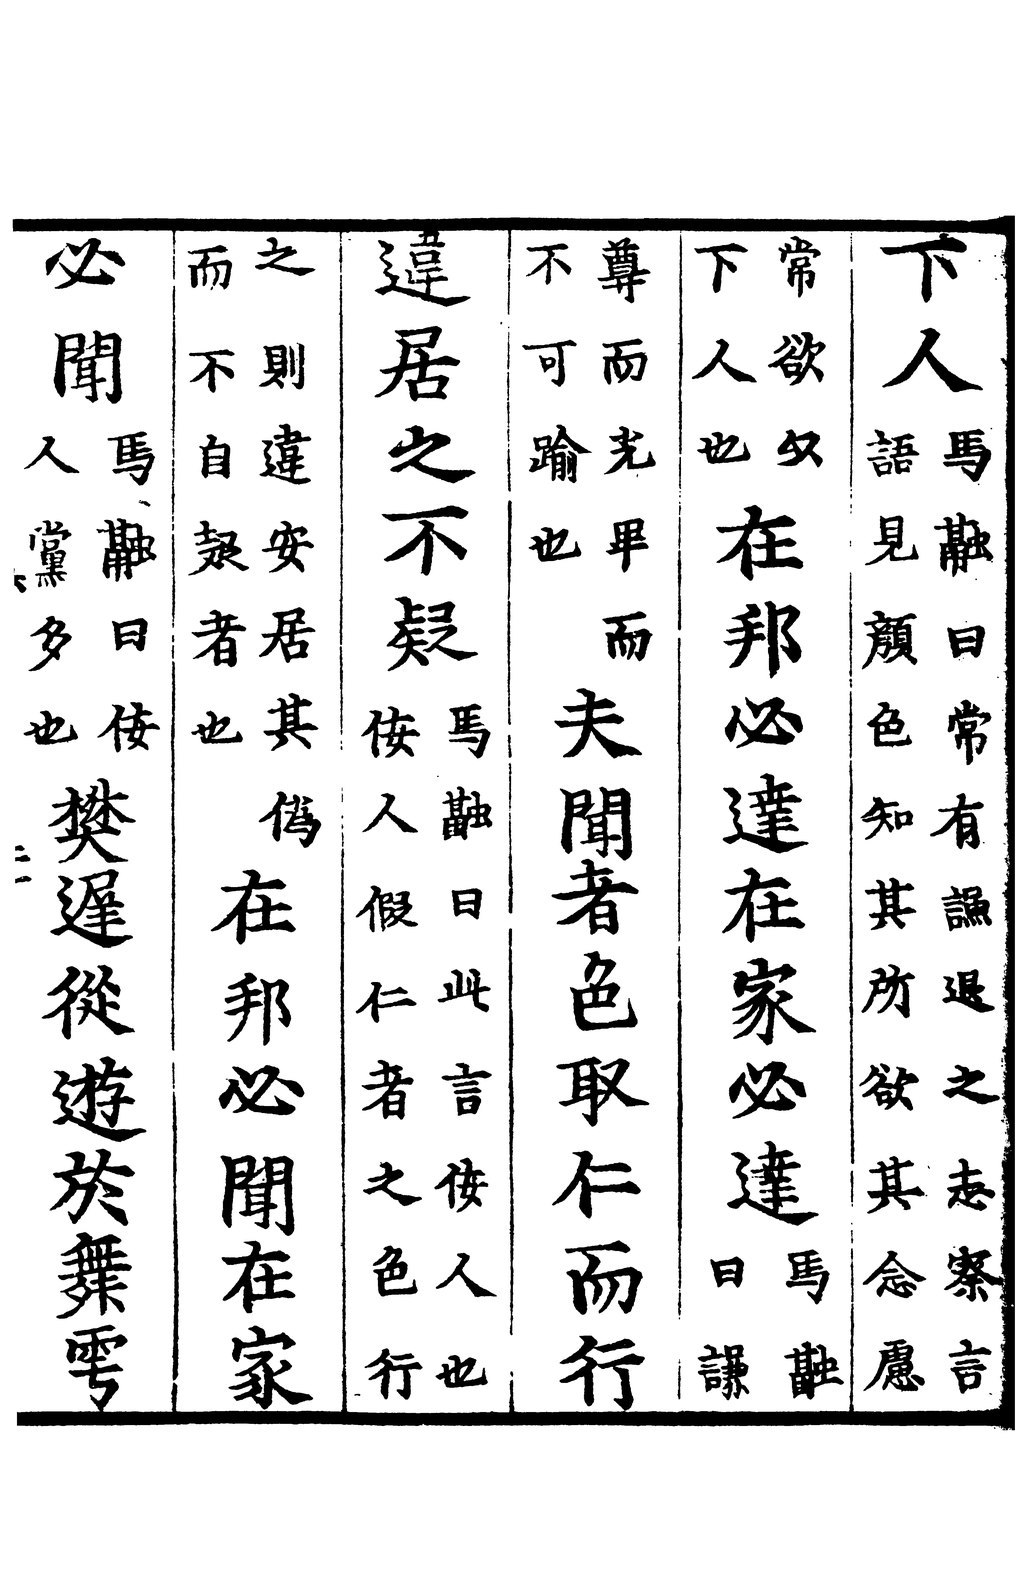 下人馬融曰常有謙退之志察言語見顔色知其所欲其念慮
常欲以下人也在邦必達在家必達馬融曰謙
尊而光卑而不可踰也夫聞者色取仁而行
違居之不疑馬融曰此言佞人也佞人假仁者之色行
之則違安居其僞而不自疑者也在邦必聞在家
必聞馬融曰佞人黨多也樊遲從遊於舞雩